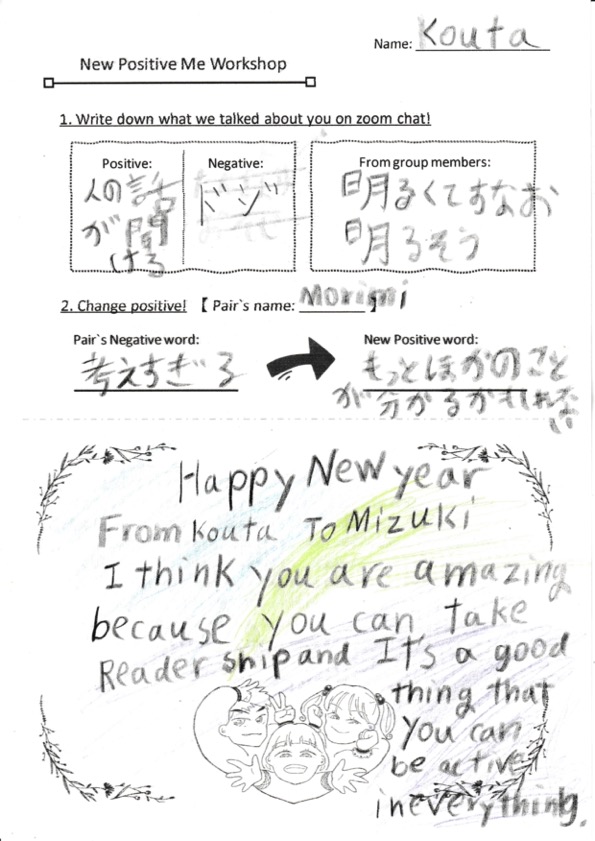 Name: Kouta
New Positive Me Workshop
1. Write down what we talked about you on zoom chat!
Positive:
人の話
が聞
ける
Negative:
ドジ
From group members:
明るくてすなお
明るそう
2. Change positive! 【 Pair`s name: Morimi 】
Pair`s Negative word:
考えすぎる
New Positive word:
もっとほかのこと
が分かるかもしれない
Happy New year
From Kouta To Mizuki
I think you are amazing
because you can take
Reader ship and It's a good
thing that
you can
be active
in everything.